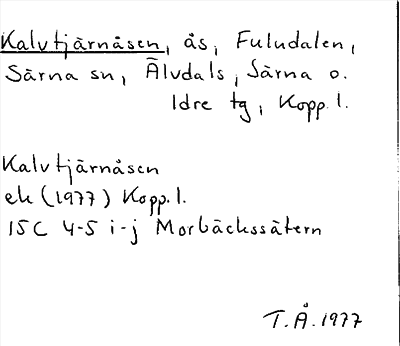 Kalvtjärnåsen, ås, Fuludalen,
Särna sn, Älvdals, Särna o.
Idre tg, Kopp. l.
Kalvtjärnåsen
ek (1977) Kopp. l.
15C 4-5 i-j Morbäckssätern
T.Å. 1977